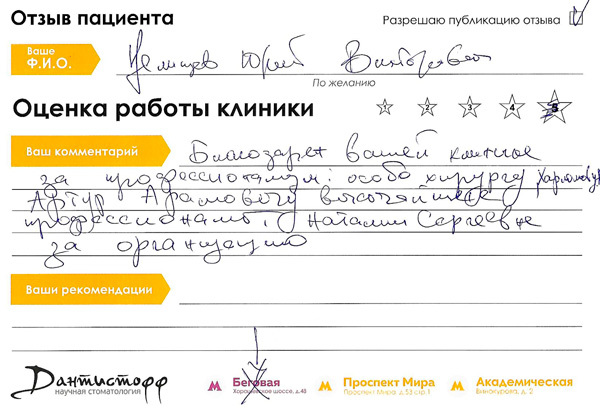 Отзыв пациента
Разрешаю публикацию отзыва
Ваше
Ф.И.О.
Юрий Викторович
По желанию
Оценка работы клиники
1 2 3 4 5
Ваш комментарий
Благодарен вашей клинике
за профессионализм: особо хирургу
Артур Арамовичу высочайшее
профессионамы, Наталии Сергеевне
за организацию
Ваши рекомендации
Дантистофф
научная стоматология
М Беговая
Хорошевское шоссе, д.48
М Проспект Мира
Проспект Мира д.53 стр.1
М Академическая
Винокурова, д. 2